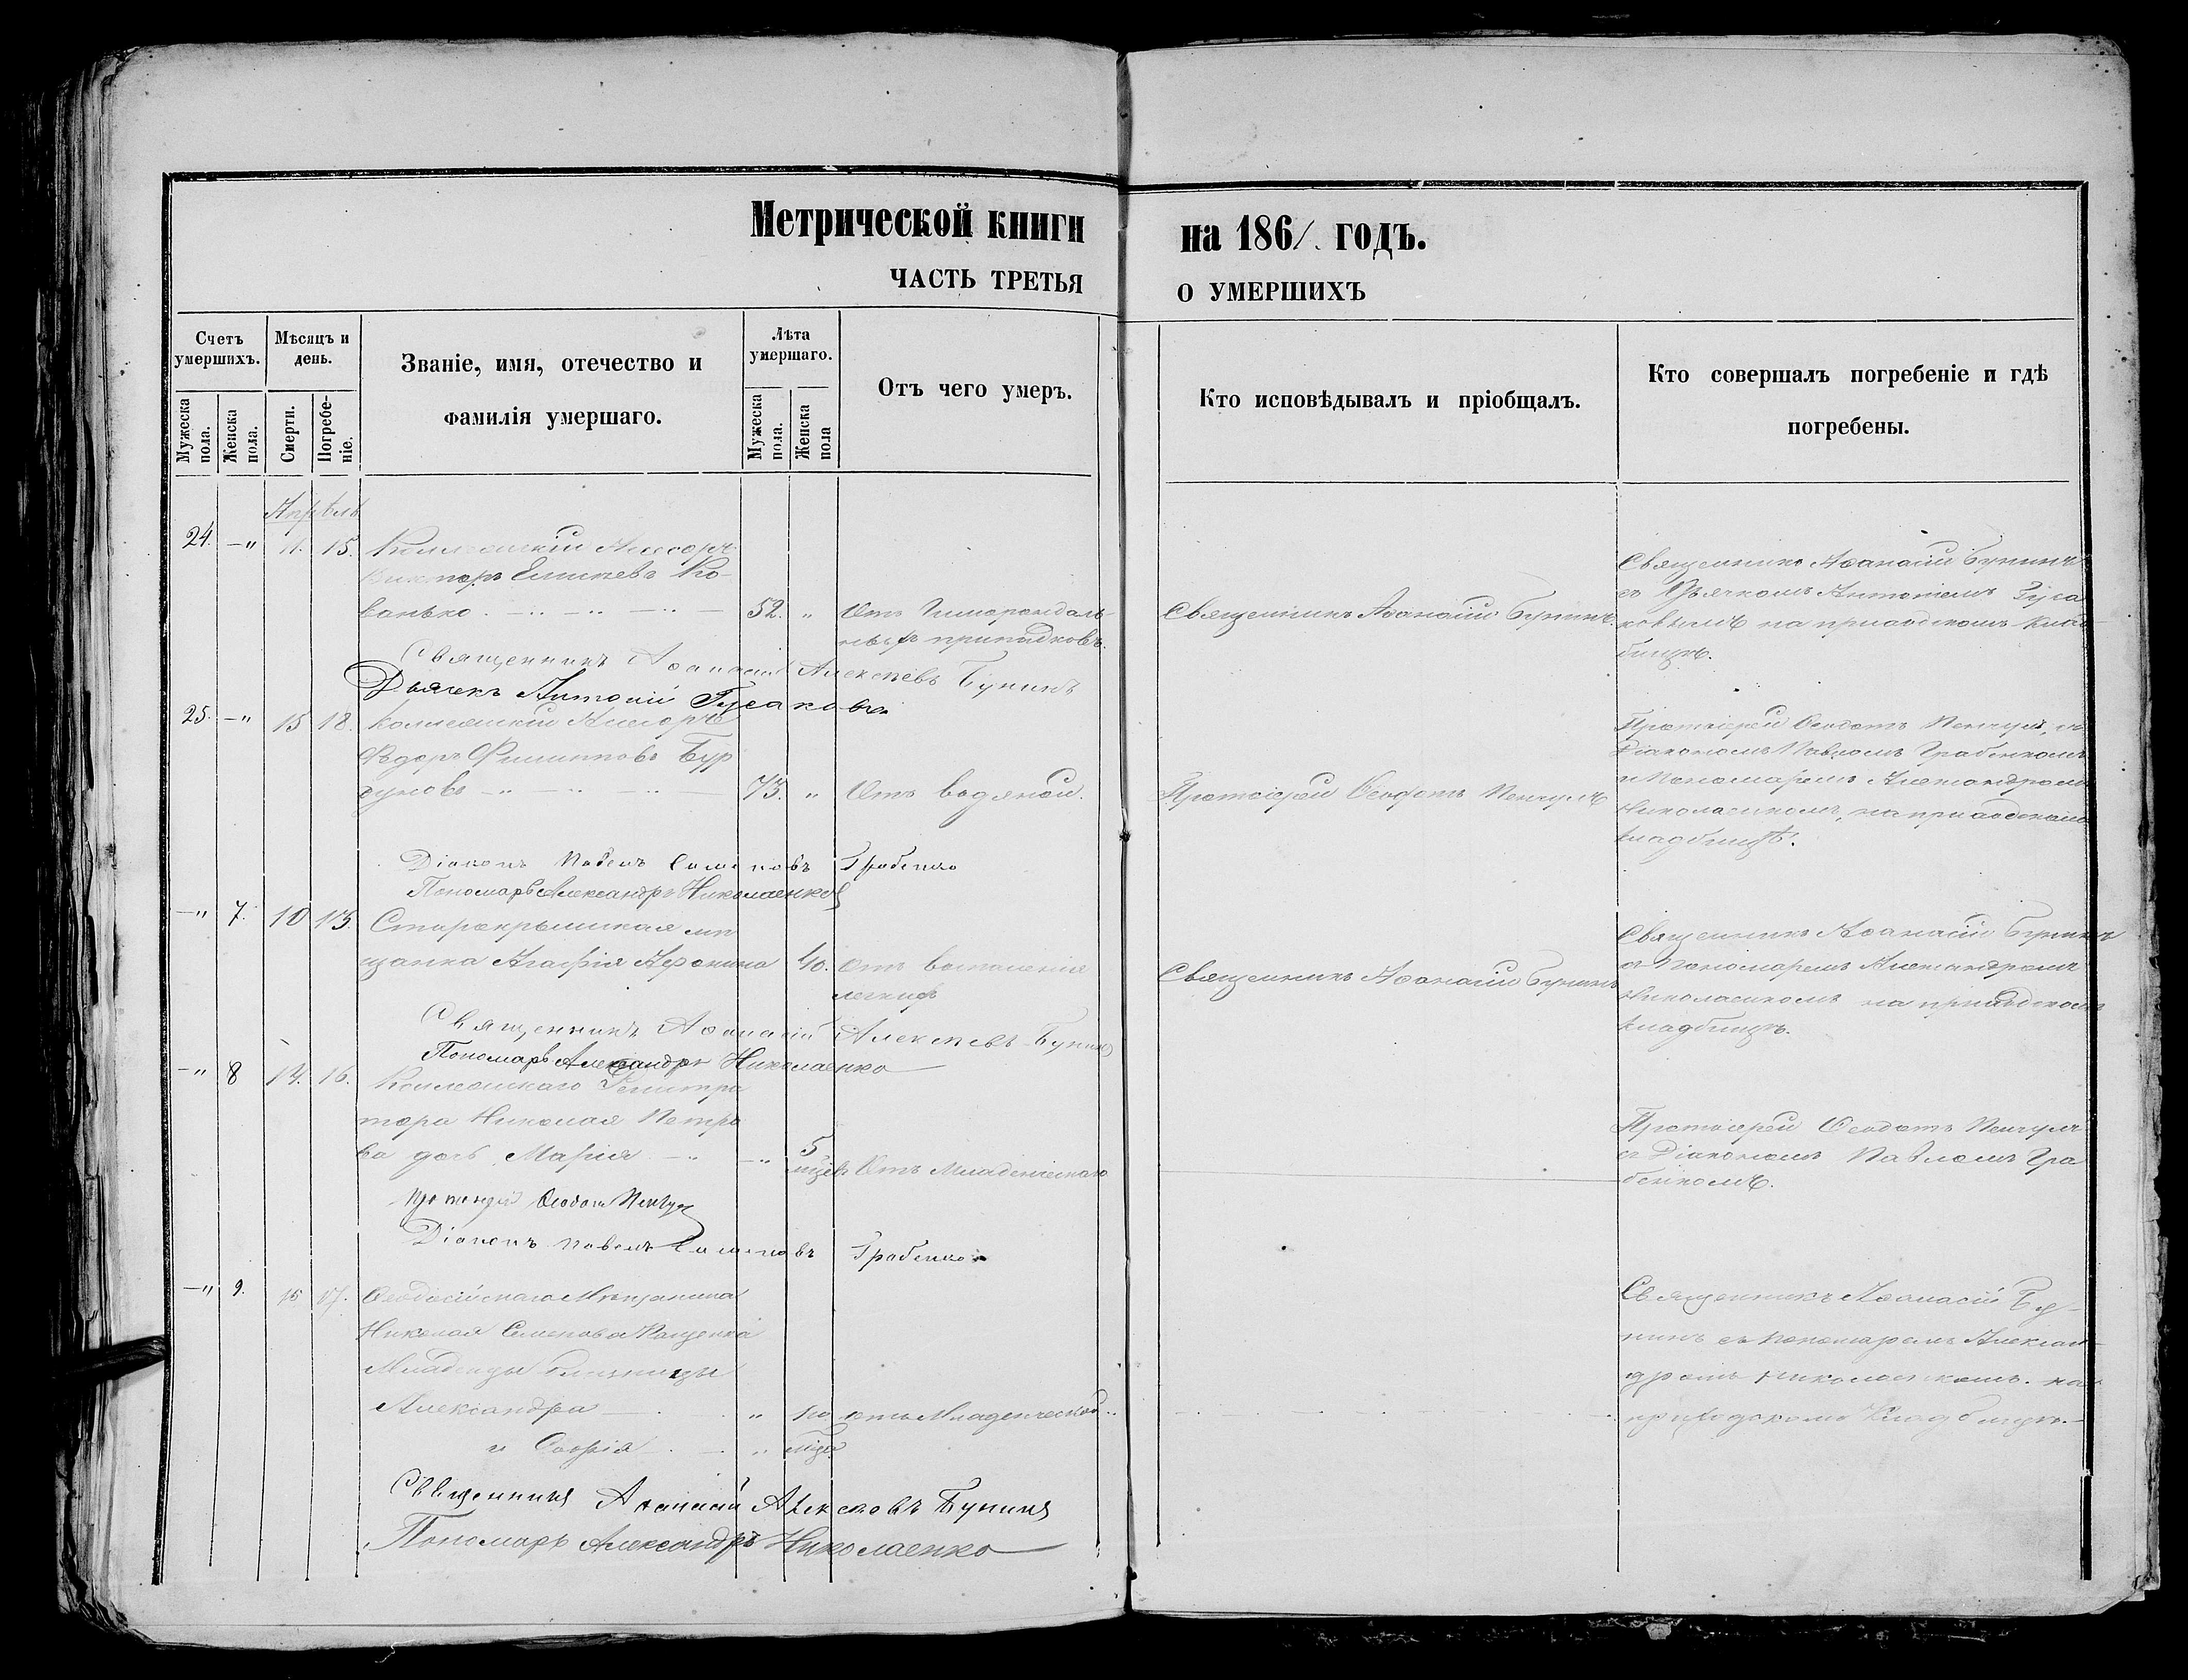 Метрической книги
на 1861. годъ.
ЧАСТЬ ТРЕТЬЯ
О УМЕРШИХЪ
Счетъ умершихъ.
Мѣсяцъ и день.
Званіе, имя, отечество и
фамилія умершаго.
Лѣта умершаго.
Отъ чего умеръ.
Кто исповѣдывалъ и пріобщалъ.
Кто совершалъ погребеніе и гдѣ
погребены.
Мужеска пола.
Женска пола.
Смерти.
Погребеніе.
Мужеска пола.
Женска пола
Апрѣль
24. —" 11. 15. Коллежскій Ассесоръ
Викторъ
ванько 52. " Отъ
припадковъ.
Священникъ Аѳанасій Бунинъ.
Священникъ Аѳанасій Бунинъ
съ Дьячкомъ Антоніемъ Гуса
ковымъ на приходскомъ клад-
бищѣ.
Священникъ Аѳанасій Алексѣевъ Бунинъ
Дьячекъ Антоній Гусаковъ
25. —" 15 18. Коллежскій Ассесоръ
Ѳедоръ Филипповъ Бур
дуновъ 73. " Отъ водяной.
Протоіерей Ѳеодотъ
Протоіерей Ѳеодотъ
Діакономъ Павломъ Грабенкомъ
и Пономаремъ Александромъ
Николаенкомъ, на приходскомъ
кладбищѣ.
Діаконъ Павелъ Симоновъ Грабенко
Пономарь Александръ Николаенко
—" 7. 10 13. Старокрымская мѣ
щанка Агафія Афонина 40. Отъ воспаленія
легкихъ
Священникъ Аѳанасій Бунинъ
Священникъ Аѳанасій Бунинъ
съ Пономаремъ Александромъ
Николаенкомъ на приходскомъ
кладбищѣ.
Священникъ Аѳанасій Алексѣевъ Бунинъ
Пономарь Александръ Николаенко
—" 8 14. 16. Коллежскаго Регистра
тора Николая Петро
ва дочь Марія 5
Отъ Младенческаго
Протоіерей Ѳеодотъ
съ Діакономъ Павломъ Гра
бенкомъ.
Протоіерей Ѳеодотъ
Діаконъ Павелъ Симоновъ Грабенко
—" 9. 15 17. Ѳеодосійскаго Мѣщанина
Николая Семенова
Младенцы близнецы
Александра отъ Младенческой
и Софія
Священникъ Аѳанасій Бу-
нинъ съ Пономаремъ Алексан-
дромъ Николаенкомъ. на
приходскомъ Кладбищѣ.—
Священникъ Аѳанасій Алексѣевъ Бунинъ
Пономарь Александръ Николаенко